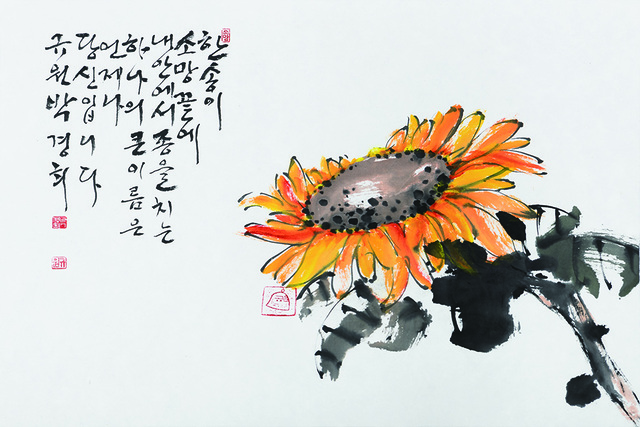 한송이
소망끝에
내안에서종을치는
하나의 큰이름은
언제나
당신입니다
규원박경희